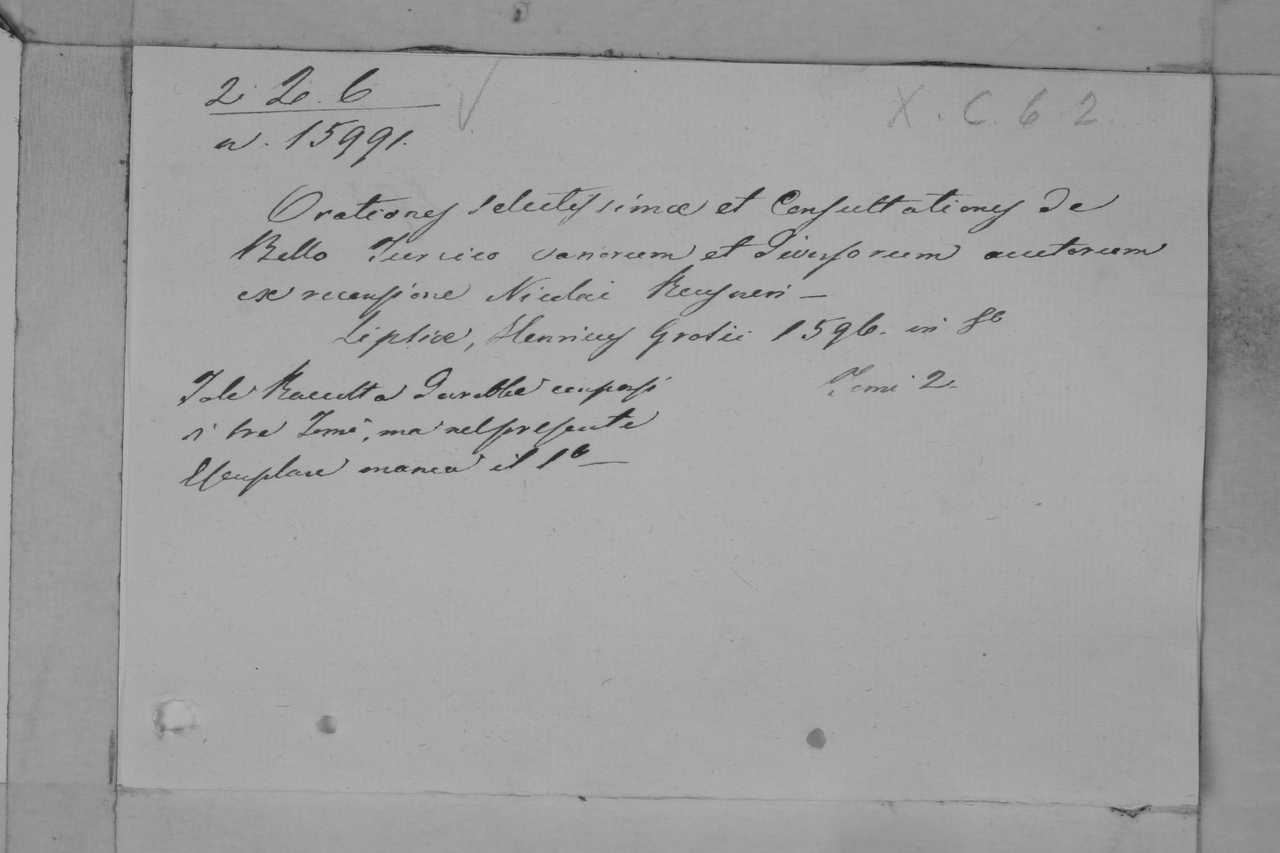 2. 2. 6
X. C. 6 2.
n. 15991.
Orationes selectissimæ et Consultationes de
Bello Turcico variorum et diversorum auctorum
ex recensione Nicolai Reusneri —
Lipsiæ, Henricus Grosii 1596. in 8º
Tale Raccolta dovrebbe essere
Tomi 2.
i tre Tomi, ma nel presente
Esemplare manca il 1º —